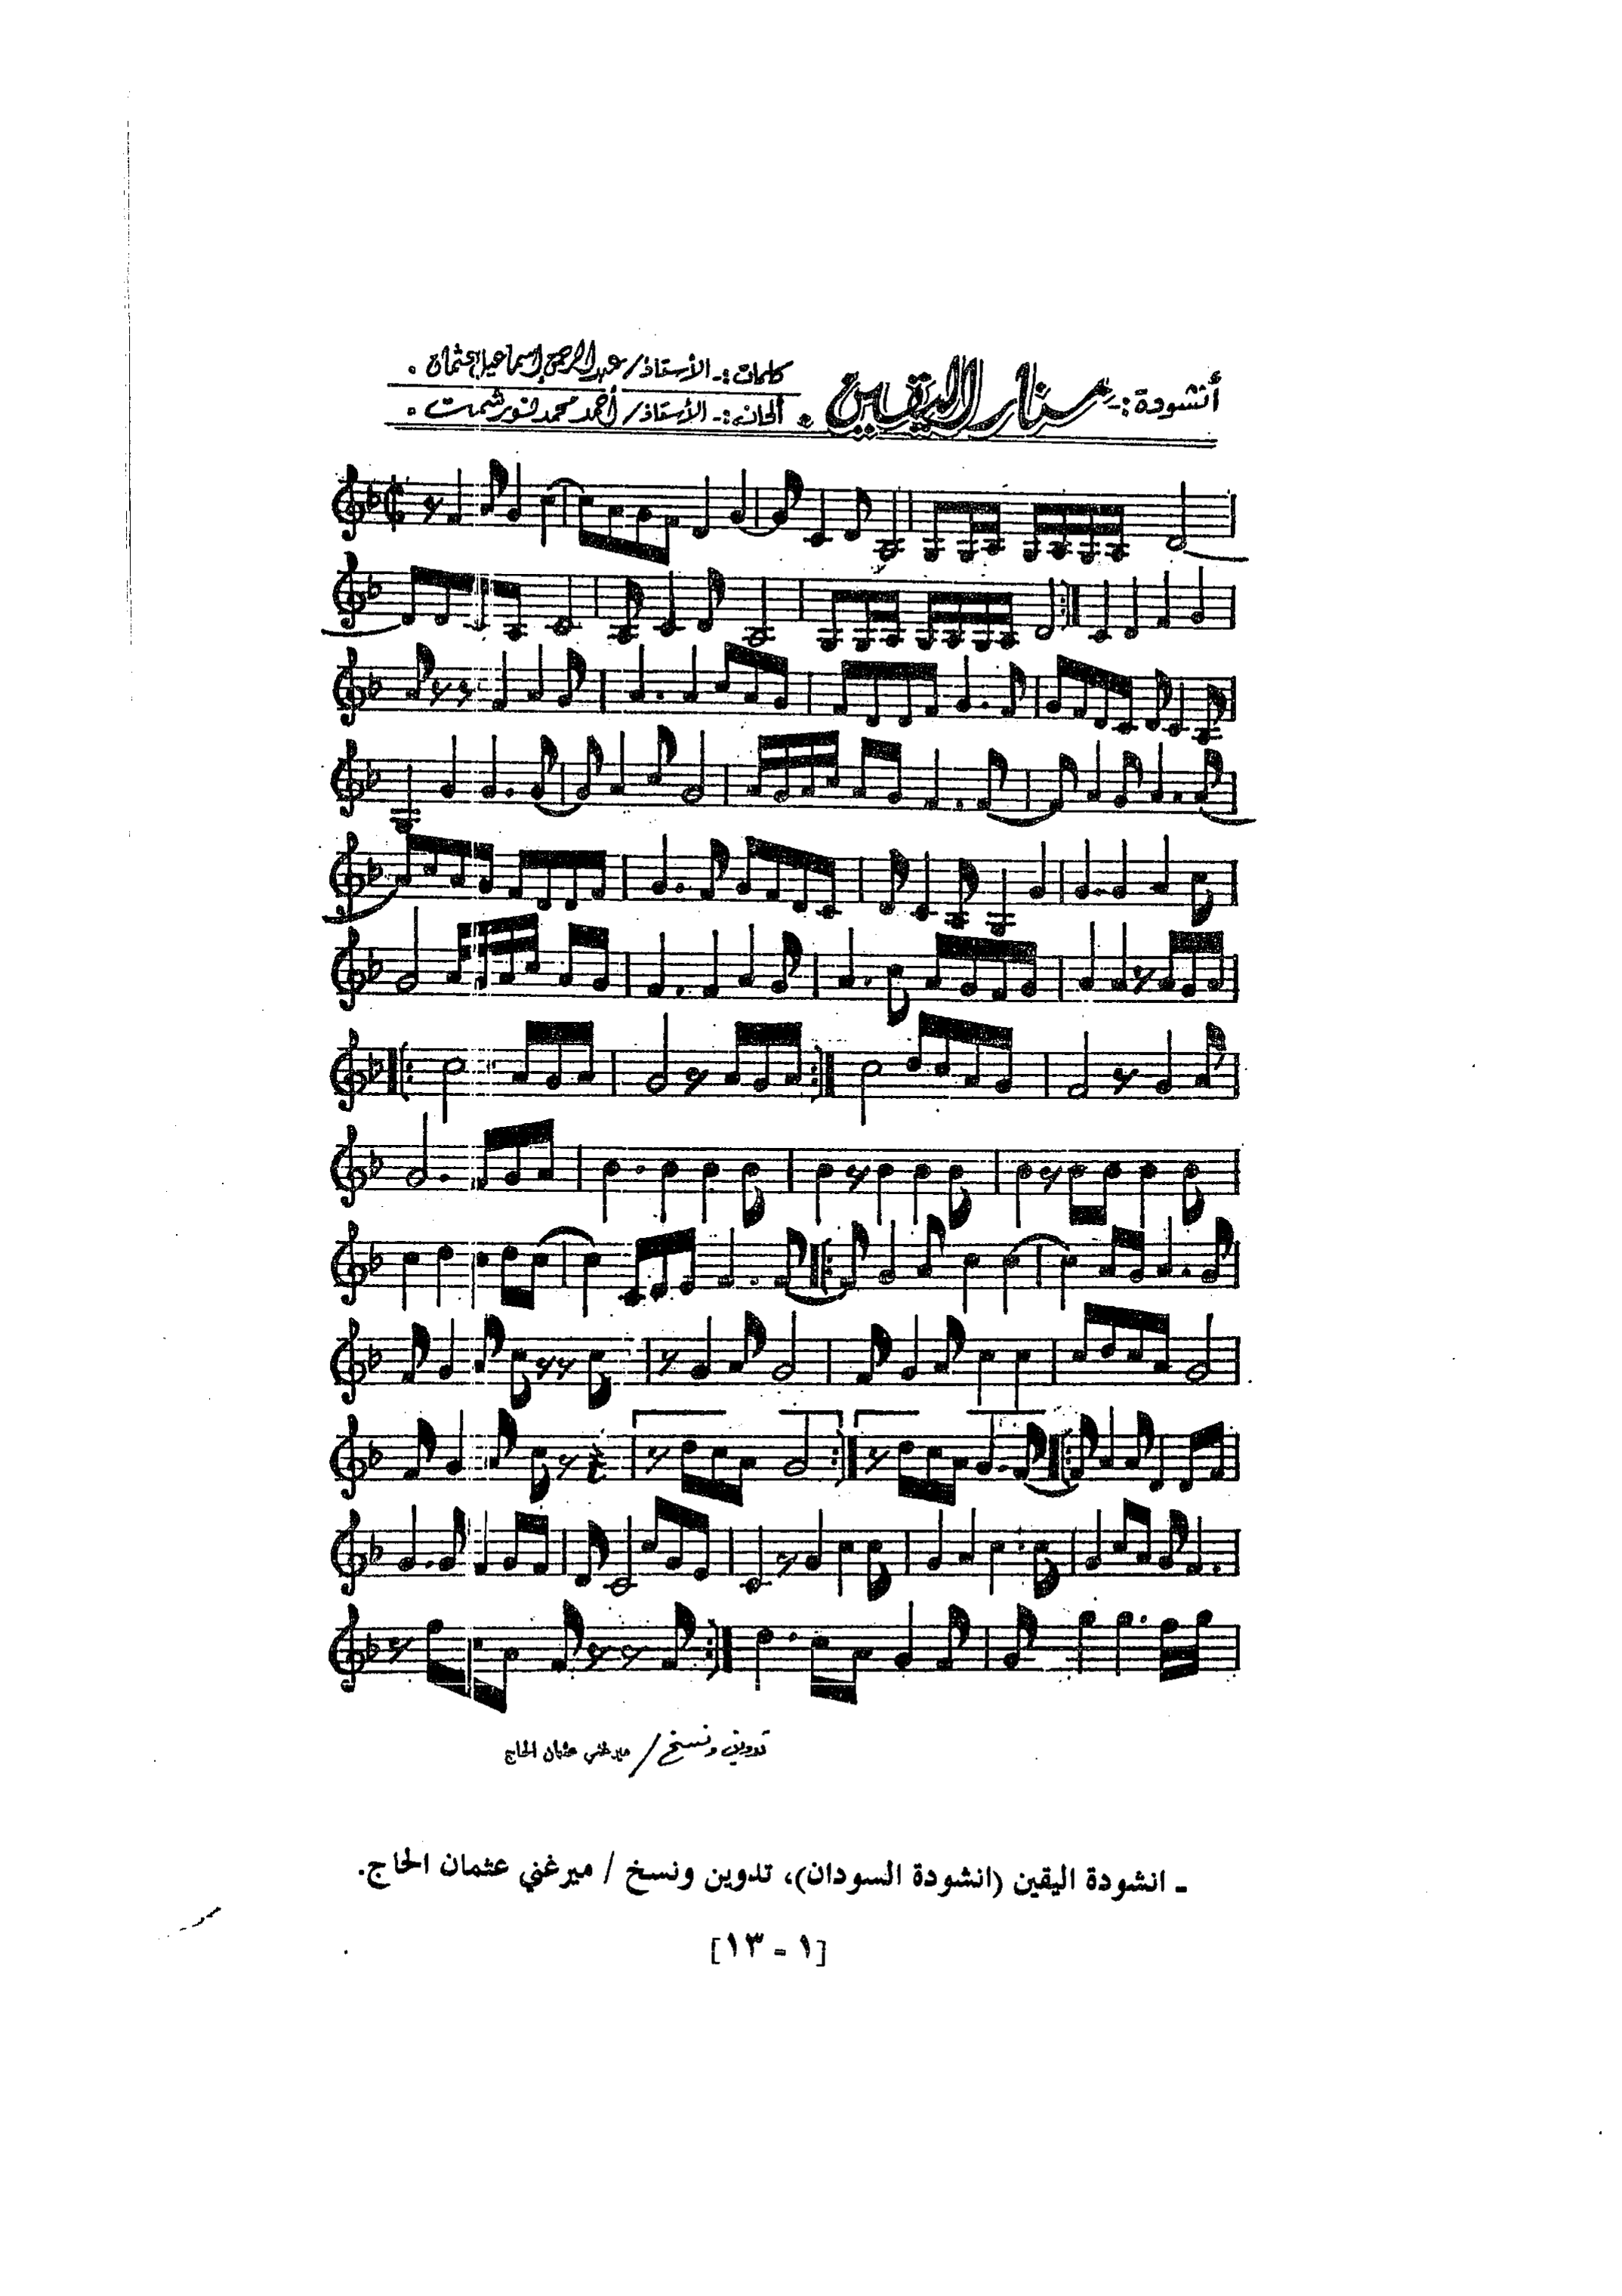 أنشودة :- منار اليقين
كلمات :- الأستاذ / عبد الرحمن إسماعيل عثمان .
ألحان :- الأستاذ / أحمد محمد شمت .
تدوين ونسخ / ميرغني عثمان الحاج
ـ انشودة اليقين (انشودة السودان)، تدوين ونسخ / ميرغني عثمان الحاج.
[١ - ١٣]